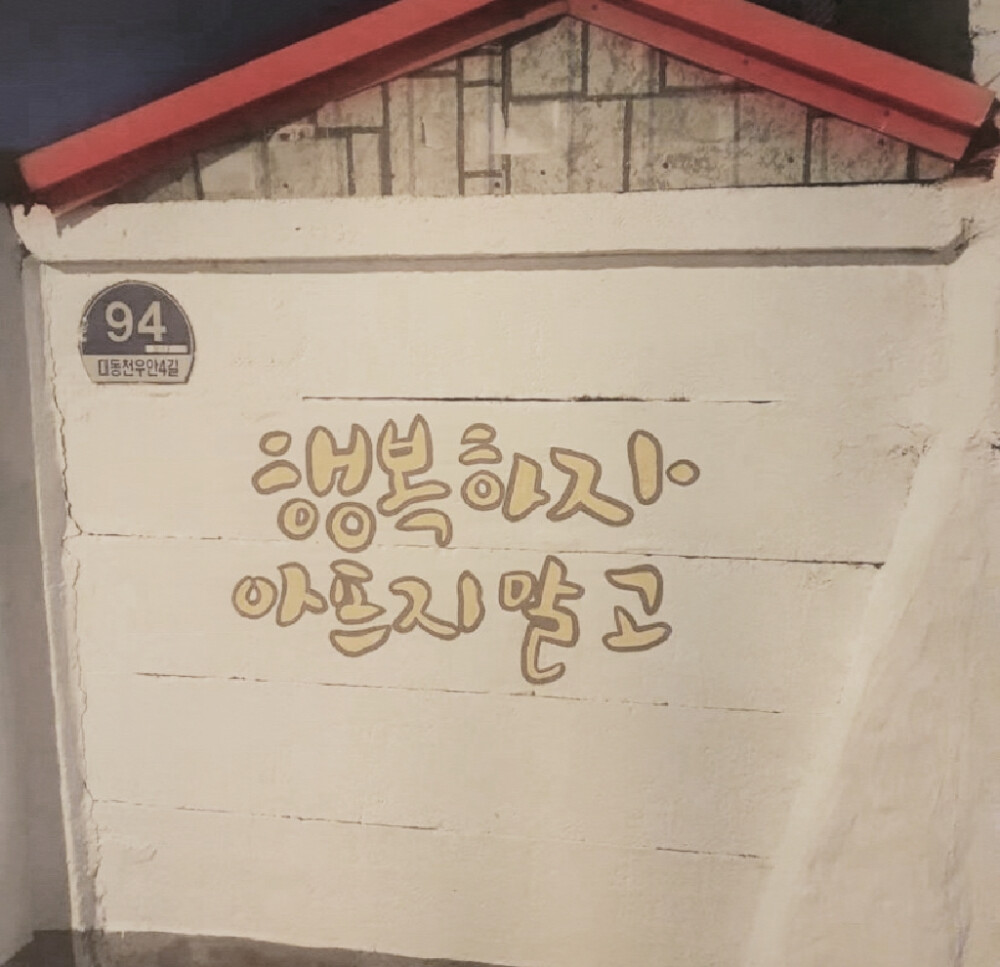 94
대동천우안4길
행복하자
아프지 말고